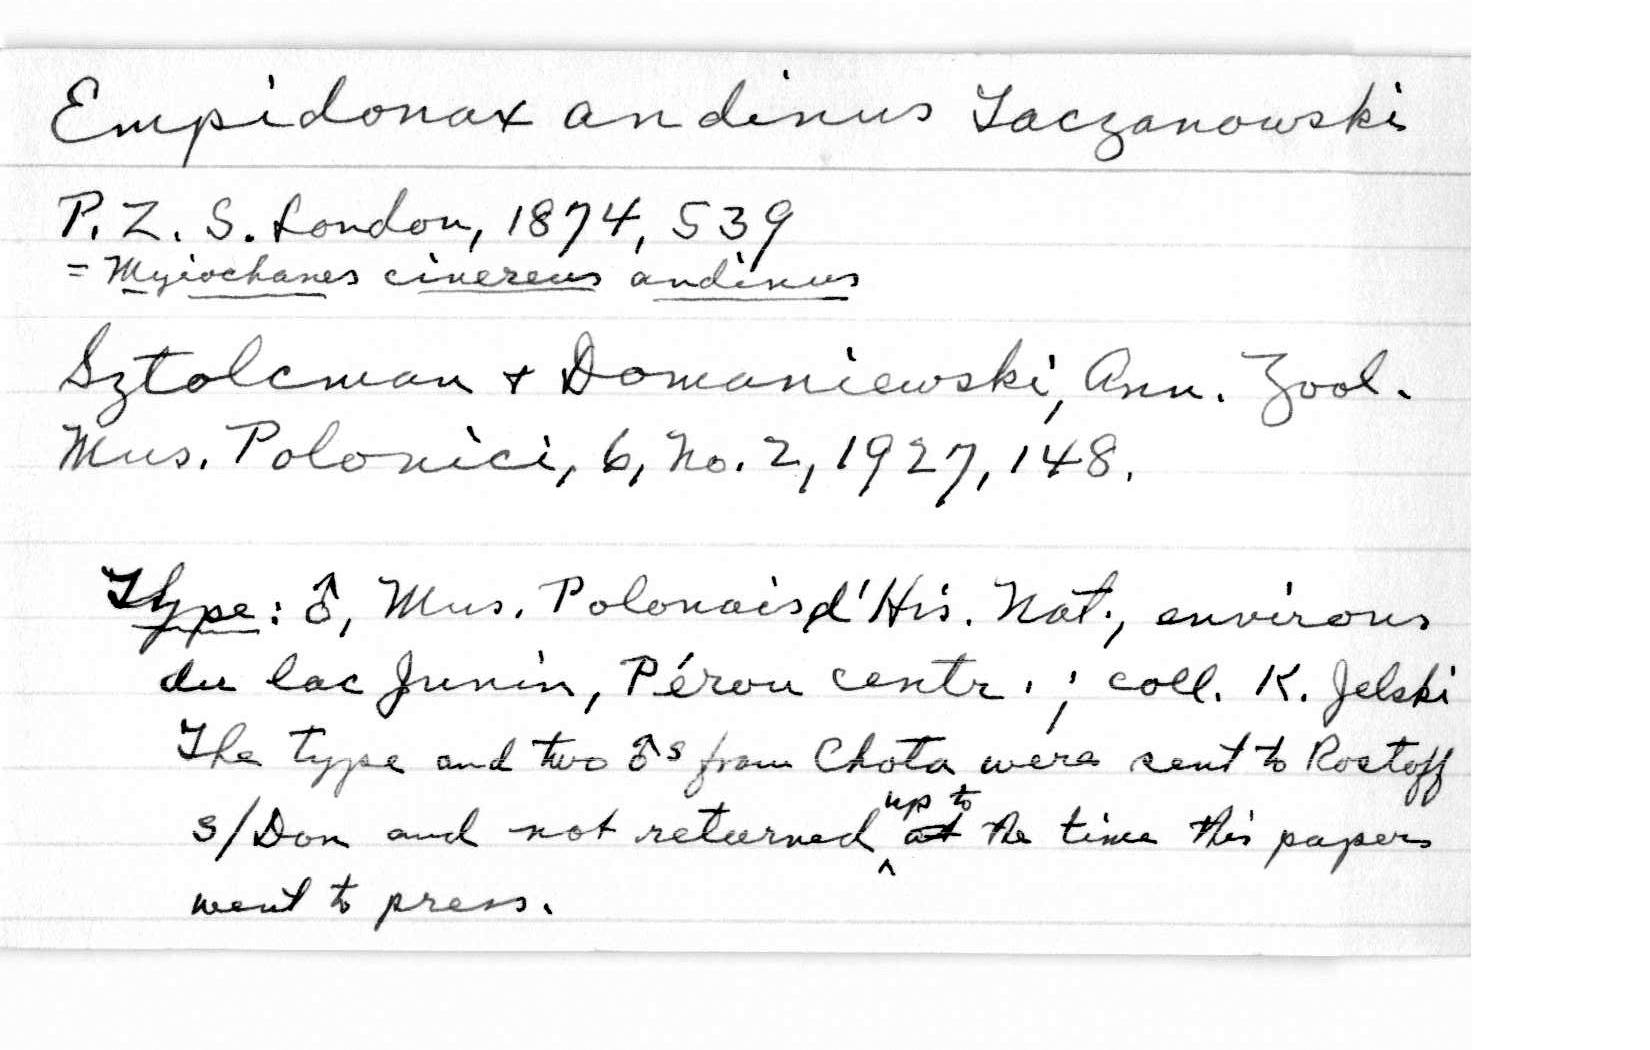 Empidonax andinus Taczanowski
P. Z. S. London, 1874, 539
= Myiochanes cinereus andinus
Sztolcman + Domaniewski, Ann. Zool.
Mus. Polonici, 6, No. 2, 1927, 148.
Type: ♂, Mus. Polonais d'His. Nat., environs
du lac Junin, Pérou centr.; coll. K. Jelski
The type and two ♂s from Chota were sent to Rostoff
s/Don and not returned up to at the time this paper
went to press.